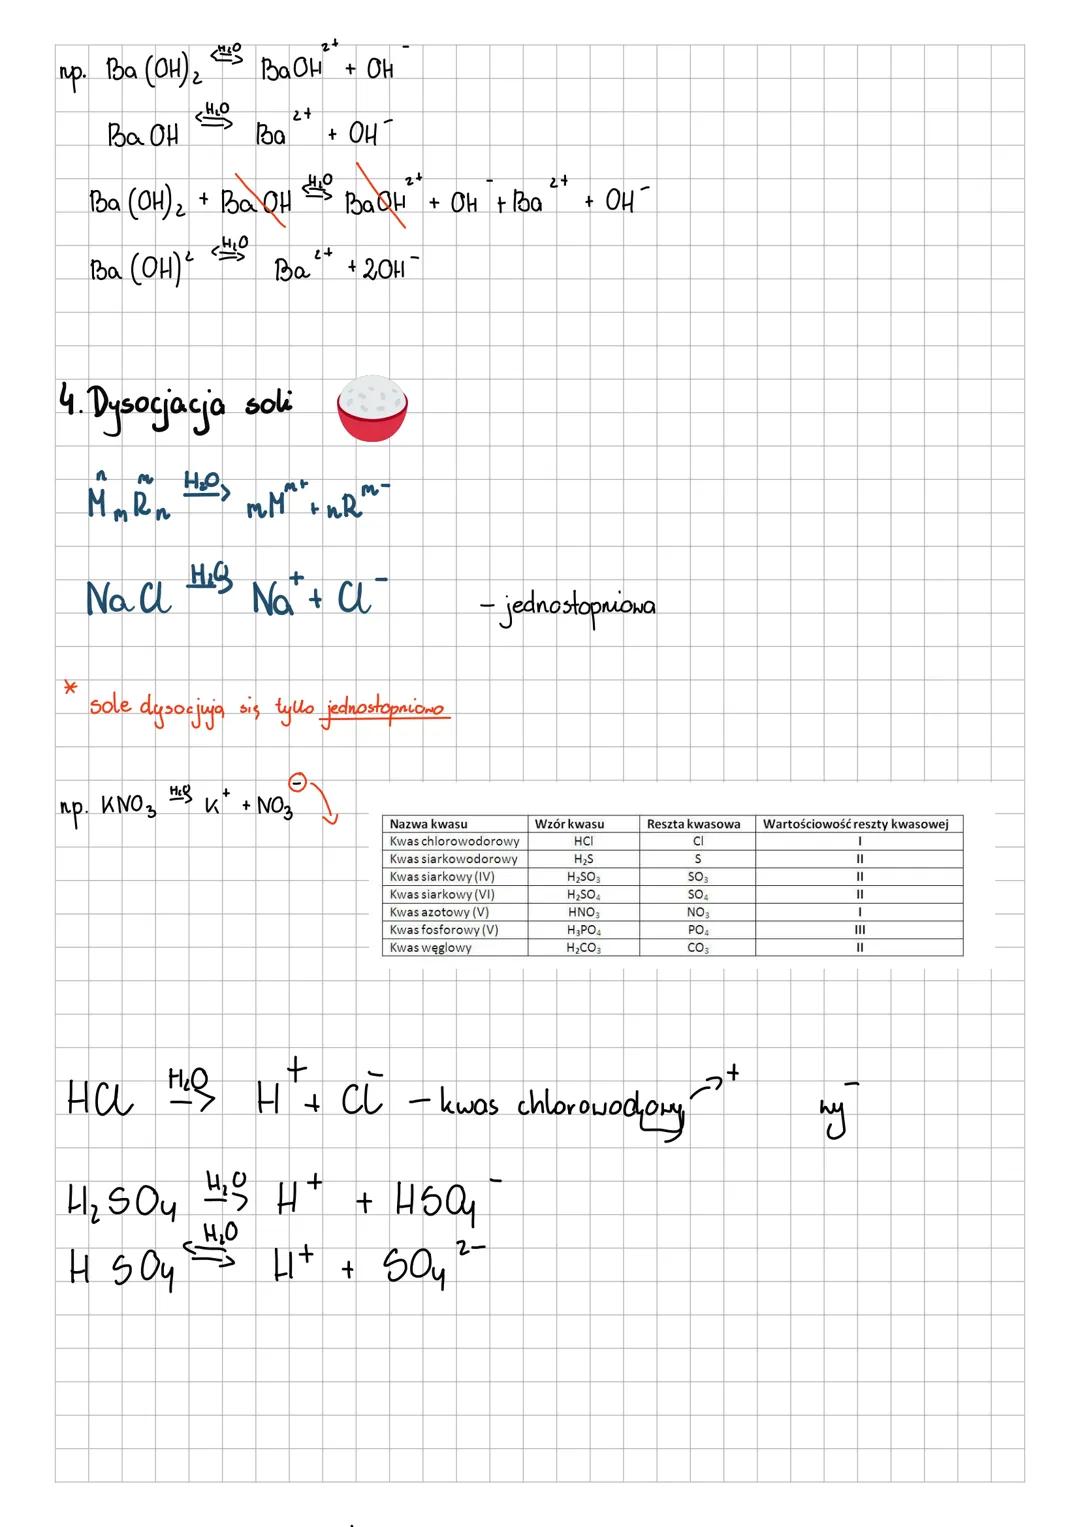 np. Ba(OH)₂ ⇌ H₂O BaOH²⁺ + OH⁻
BaOH ⇌ H₂O Ba²⁺ + OH⁻
Ba(OH)₂ + BaOH ⇌ H₂O BaOH²⁺ + OH⁻ + Ba²⁺ + OH⁻
Ba(OH)² ⇌ H₂O Ba²⁺ + 2OH⁻
4. Dysocjacja soli
MⁿₘRᵐₙ H₂O → mMᵐ⁺ + nRᵐ⁻
NaCl H₂O → Na⁺ + Cl⁻ - jednostopniowa
* sole dysocjują się tylko jednostopniowo
np. KNO₃ H₂O → K⁺ + NO₃⁻
Nazwa kwasu Wzór kwasu Reszta kwasowa Wartościowość reszty kwasowej
Kwas chlorowodorowy HCl Cl I
Kwas siarkowodorowy H₂S S II
Kwas siarkowy (IV) H₂SO₃ SO₃ II
Kwas siarkowy (VI) H₂SO₄ SO₄ II
Kwas azotowy (V) HNO₃ NO₃ I
Kwas fosforowy (V) H₃PO₄ PO₄ III
Kwas węglowy H₂CO₃ CO₃ II
HCl H₂O → H⁺ + Cl⁻ - kwas chlorowodorowy → + ny⁻
H₂SO₄ H₂O → H⁺ + HSO₄⁻
HSO₄ ⇌ H₂O H⁺ + SO₄²⁻